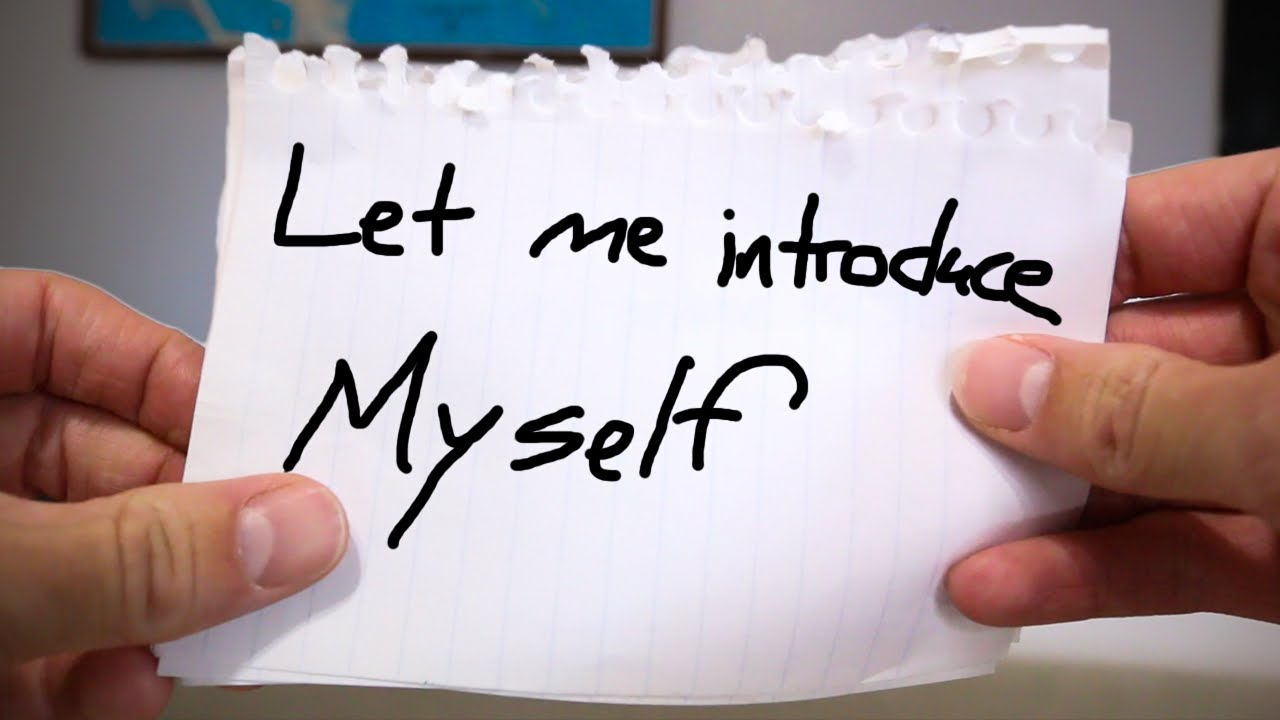 Let me introduce
Myself